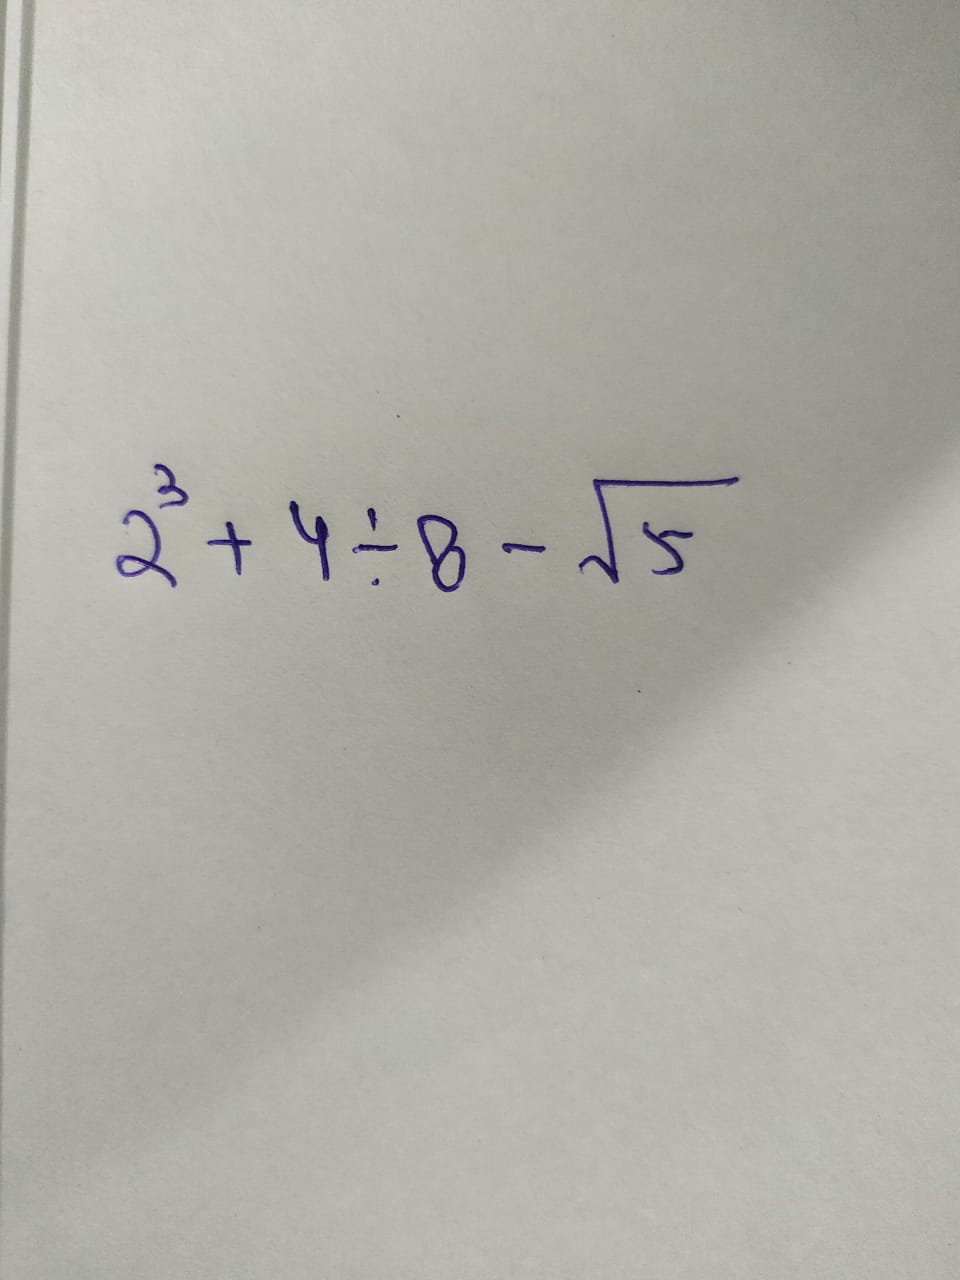 2³ + 4 ÷ 8 - √5